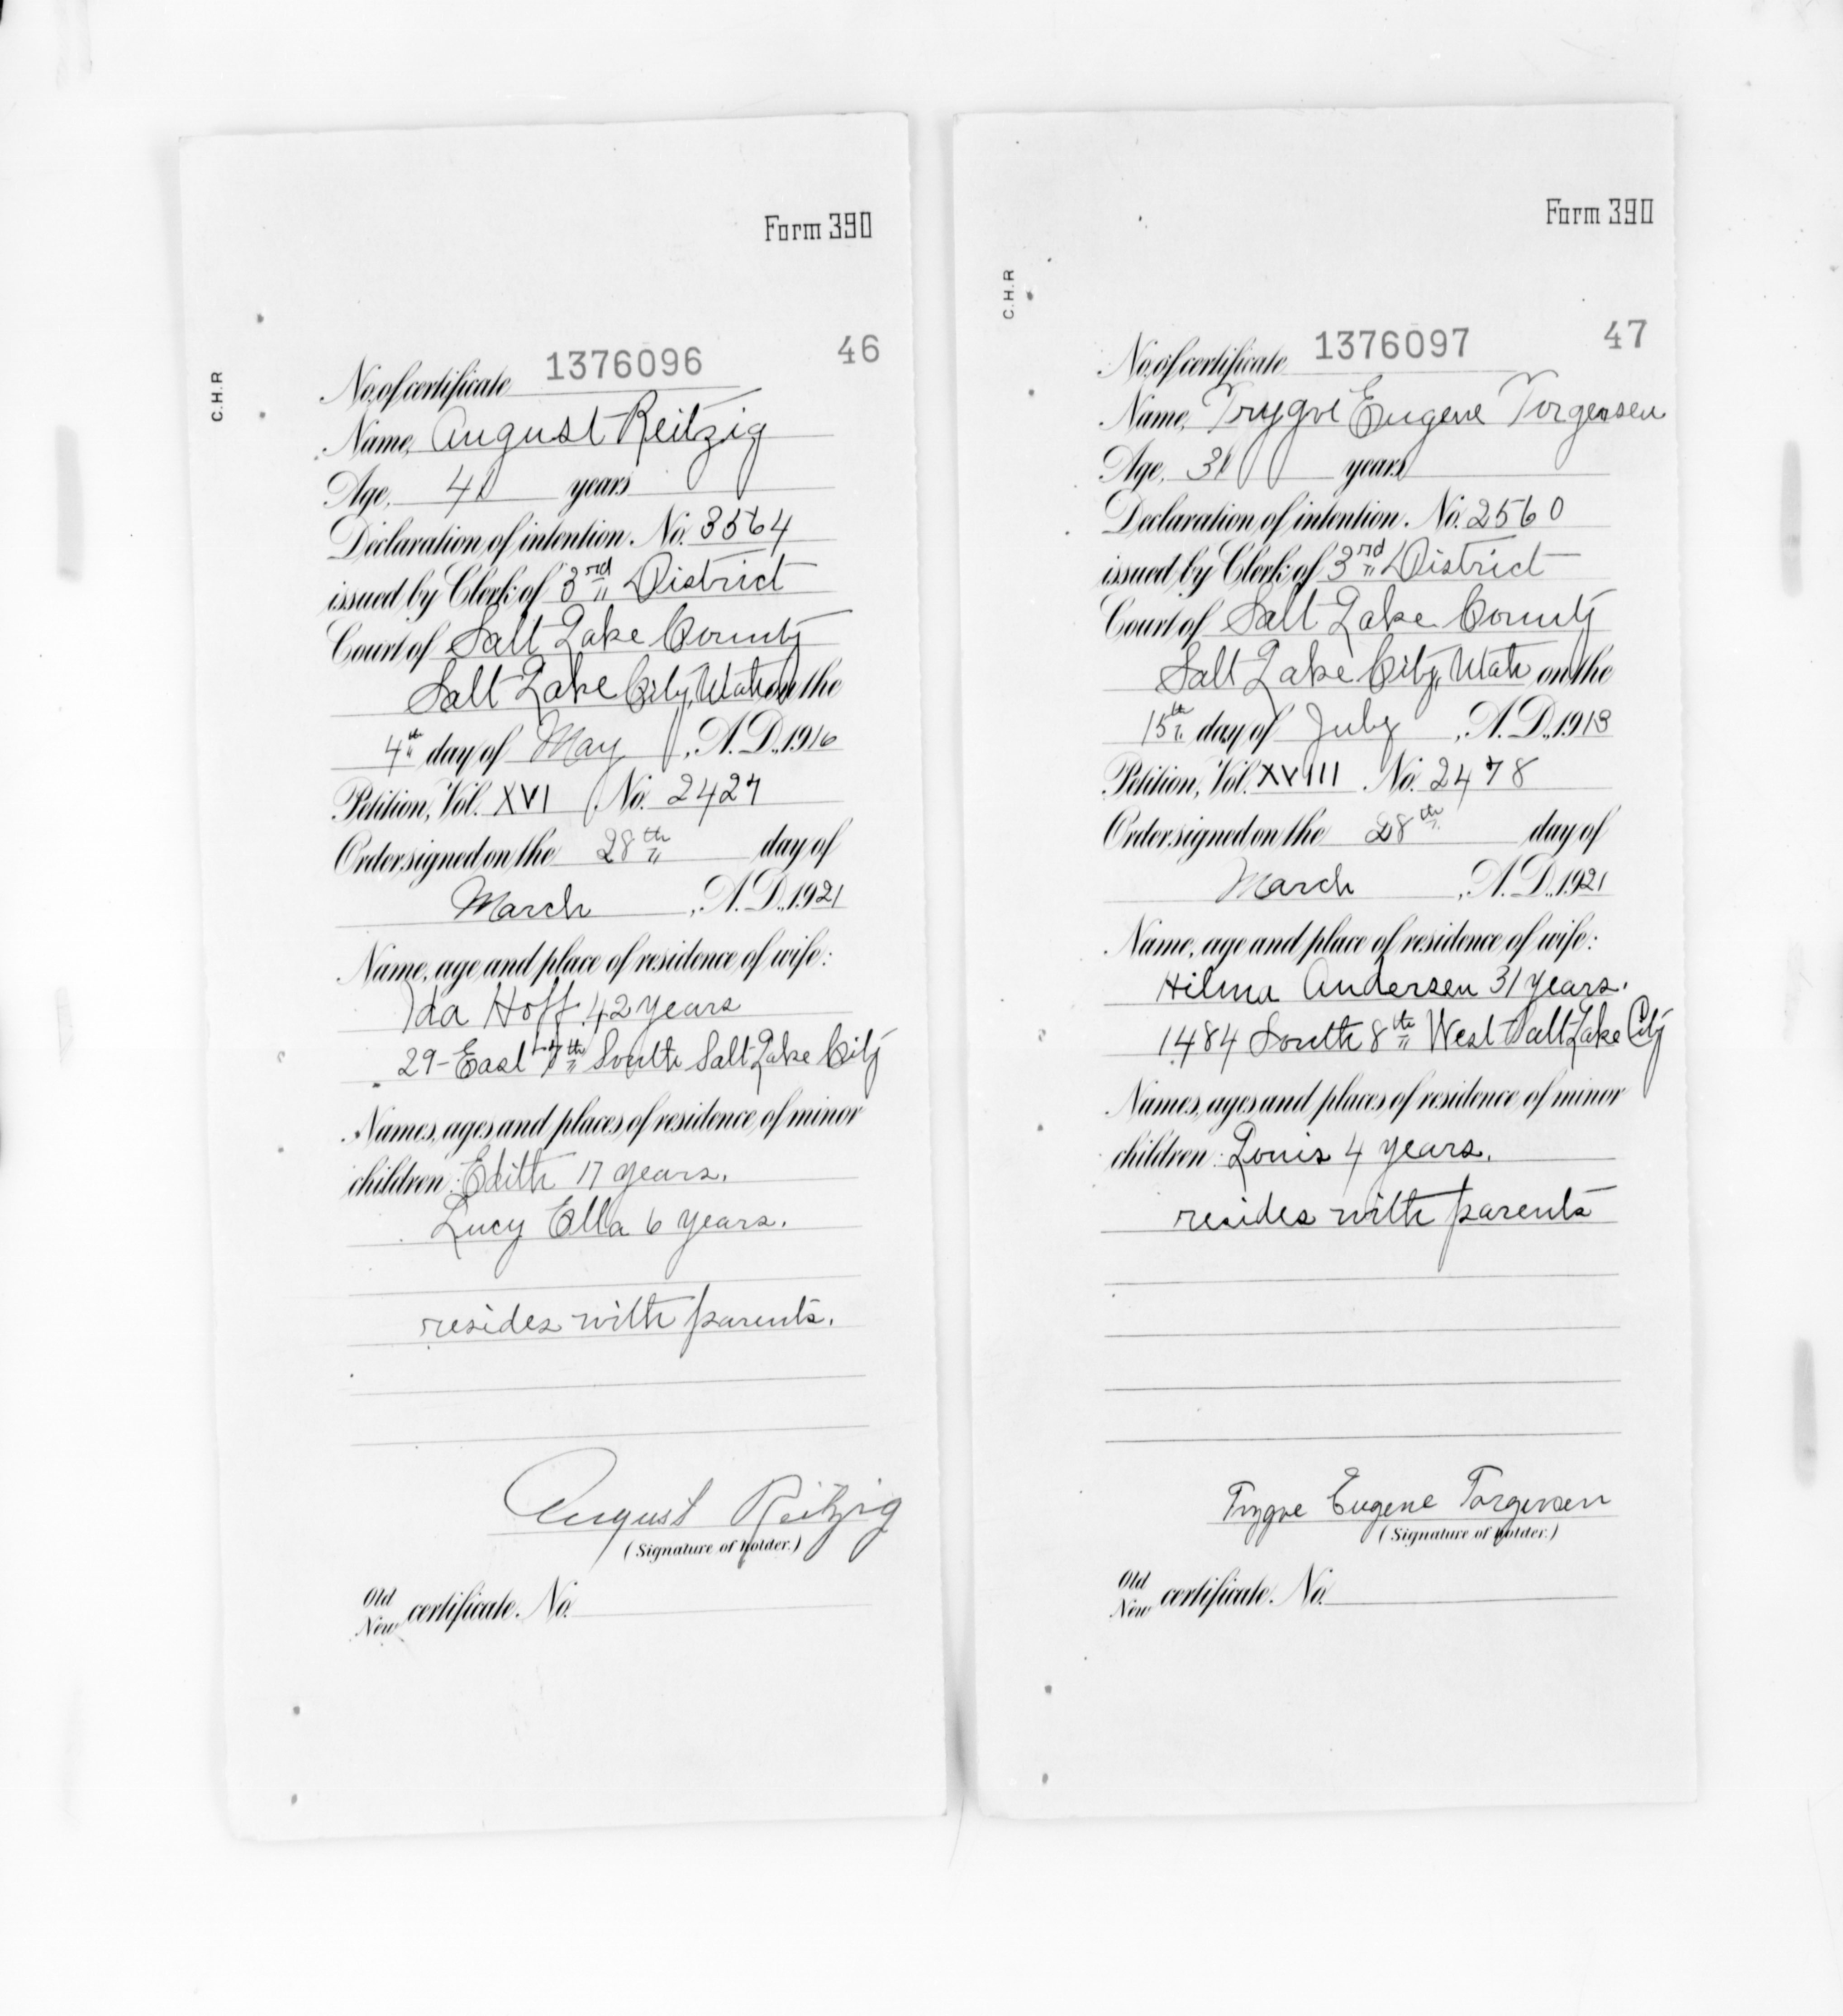 Form 390
C.H.R
46
No. of certificate 1376096
Name, August Reitzig
Age, 41 years
Declaration of intention. No. 3564
issued by Clerk of 3rd District
Court of Salt Lake County
Salt Lake City, Utah on the
4th day of May, A.D., 1916
Petition, Vol. XVI No. 2427
Order signed on the 28th day of
March, A.D., 1921
Name, age and place of residence of wife:
Ida Hoff 42 years
29-East South Salt Lake City
Names, ages and places of residence of minor
children: Edith 17 years.
Lucy Ella 6 years.
resides with parents.
August Reitzig
(Signature of holder.)
Old
New certificate. No.
Form 390
C.H.R
47
No. of certificate 1376097
Name, Trygve Eugene Torgensen
Age, 31 years
Declaration of intention. No. 2560
issued by Clerk of 3rd District
Court of Salt Lake County
Salt Lake City, Utah on the
15th day of July, A.D., 1913
Petition, Vol. XVIII No. 2478
Order signed on the 28th day of
March, A.D., 1921
Name, age and place of residence of wife:
Hilma Andersen 31 years.
1484 South 8th West Salt Lake City
Names, ages and places of residence of minor
children: Louis 4 years.
resides with parents
Trygve Eugene Torgensen
(Signature of holder.)
Old
New certificate. No.